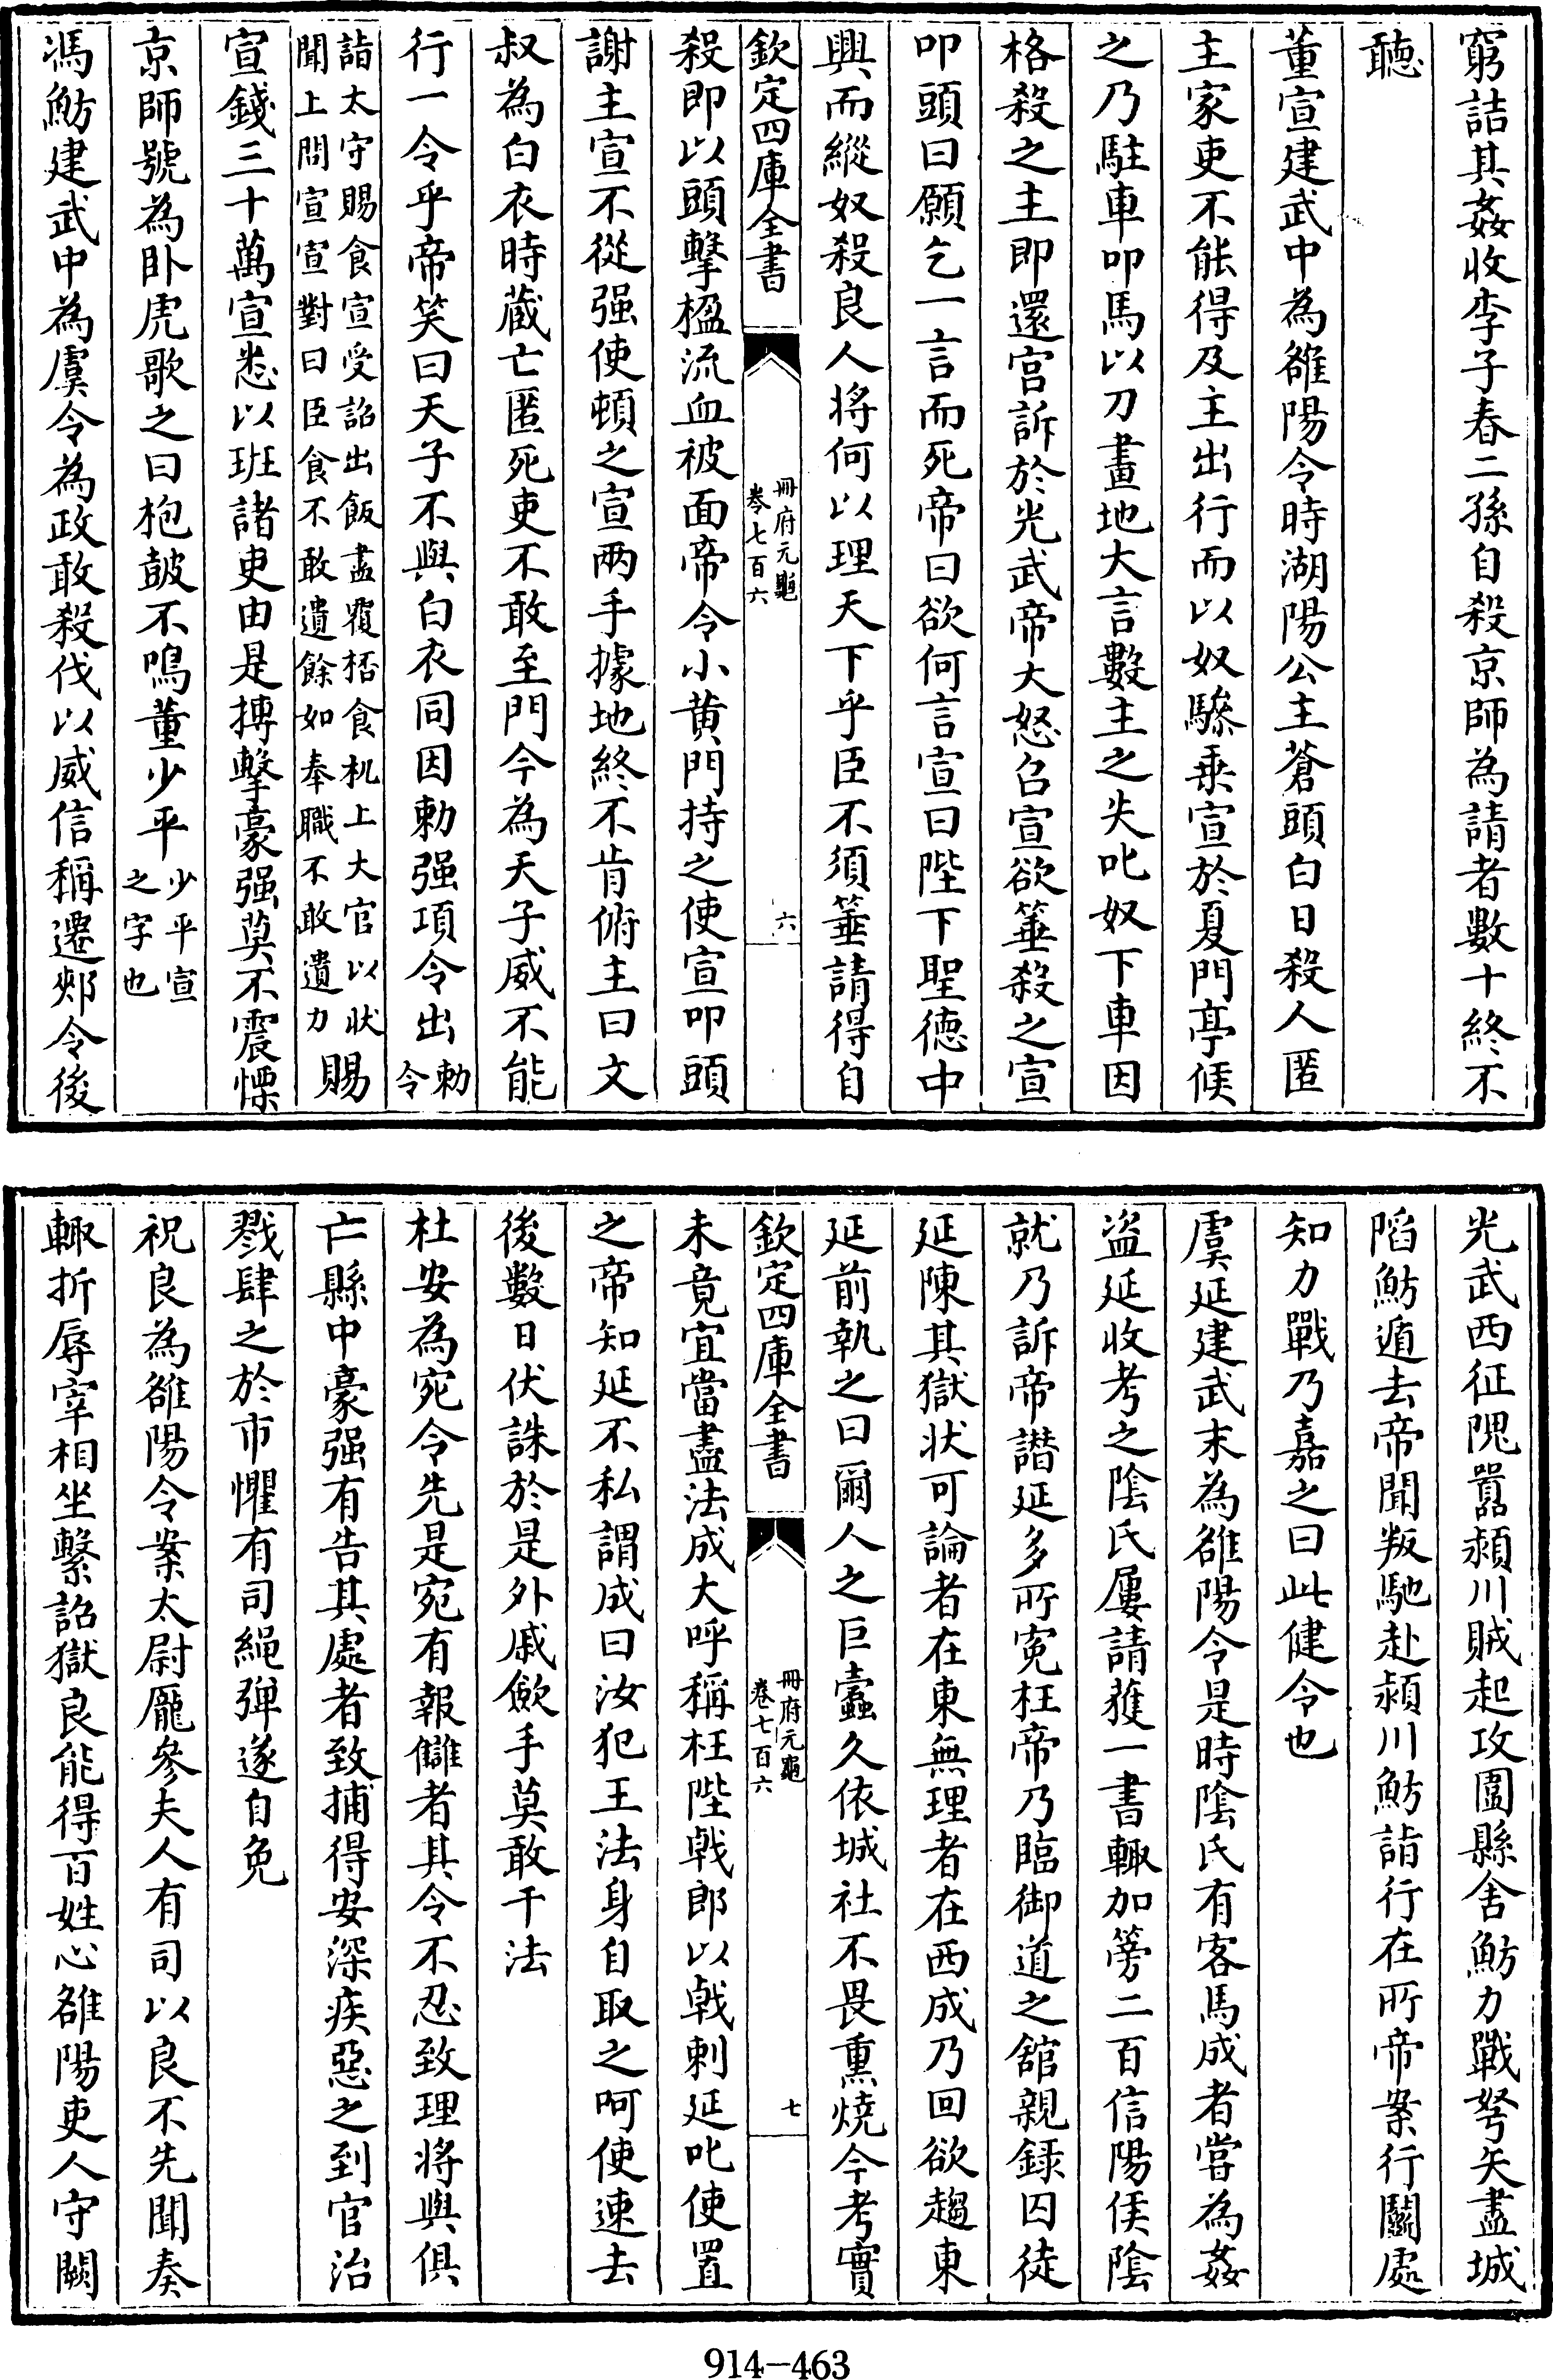 窮詰其姦收李子春二孫自殺京師為請者數十終不
聽
董宣建武中為雒陽令時湖陽公主蒼頭白日殺人匿
主家吏不能得及主出行而以奴驂乗宣於夏門亭候
之乃駐車叩馬以刀畫地大言數主之失叱奴下車因
格殺之主即還宮訴於光武帝大怒召宣欲箠殺之宣
叩頭曰願乞一言而死帝曰欲何言宣曰陛下聖德中
興而縱奴殺良人将何以理天下乎臣不須箠請得自
欽定四庫全書 冊府元龜 卷七百六 六
殺即以頭擊楹流血被面帝令小黄門持之使宣叩頭
謝主宣不從强使頓之宣兩手據地終不肯俯主曰文
叔為白衣時藏亡匿死吏不敢至門今為天子威不能
行一令乎帝笑曰天子不與白衣同因勅强項令出勅令
詣太守賜食宣受詔出飯盡覆桮食机上大官以狀
聞上問宣宣對曰臣食不敢遺餘如奉職不敢遺力賜
宣錢三十萬宣悉以班諸吏由是搏擊豪强莫不震慄
京師號為卧虎歌之曰枹鼓不鳴董少平少平宣之字也
馮魴建武中為虞令為政敢殺伐以威信稱遷郟令後
光武西征隗囂潁川賊起攻圍縣舍魴力戰弩矢盡城
䧟魴遁去帝聞叛馳赴潁川魴詣行在所帝案行鬭處
知力戰乃嘉之曰此健令也
虞延建武末為雒陽令是時陰氏有客馬成者嘗為姦
盜延收考之陰氏屢請獲一書輙加篣二百信陽侯陰
就乃訴帝譖延多所寃枉帝乃臨御道之舘親録囚徒
延陳其獄狀可論者在東無理者在西成乃回欲趨東
延前執之曰爾人之巨蠹久依城社不畏熏燒今考實
欽定四庫全書 冊府元龜 卷七百六 七
未竟宜當盡法成大呼稱枉陛戟郎以戟刺延叱使置
之帝知延不私謂成曰汝犯王法身自取之呵使速去
後數日伏誅於是外戚歛手莫敢干法
杜安為宛令先是宛有報讎者其令不忍致理将與俱
亡縣中豪强有告其處者致捕得安深疾惡之到官治
戮肆之於市懼有司繩弹遂自免
祝良為雒陽令案太尉龐參夫人有司以良不先聞奏
輙折辱宰相坐繫詔獄良能得百姓心雒陽吏人守闕
914-463